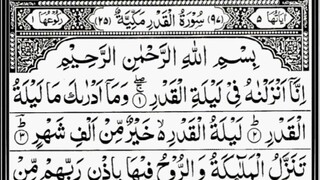 اٰیَاتُهَا ٥ (٩٧) سُوْرَةُ الْقَدْرِ مَكِّيَّةٌ (٢٥) رُكُوْعُهَا ١
بِسْمِ اللّٰهِ الرَّحْمٰنِ الرَّحِيْمِ
اِنَّاۤ اَنْزَلْنٰهُ فِيْ لَيْلَةِ الْقَدْرِ ۝١ۚۖ وَمَاۤ اَدْرٰىكَ مَا لَيْلَةُ
الْقَدْرِ ۝٢ؕ لَيْلَةُ الْقَدْرِ ۙ۬ خَيْرٌ مِّنْ اَلْفِ شَهْرٍ ۝٣ؕ
تَنَزَّلُ الْمَلٰٓئِكَةُ وَالرُّوْحُ فِيْهَا بِاِذْنِ رَبِّهِمْ ۚ مِّنْ